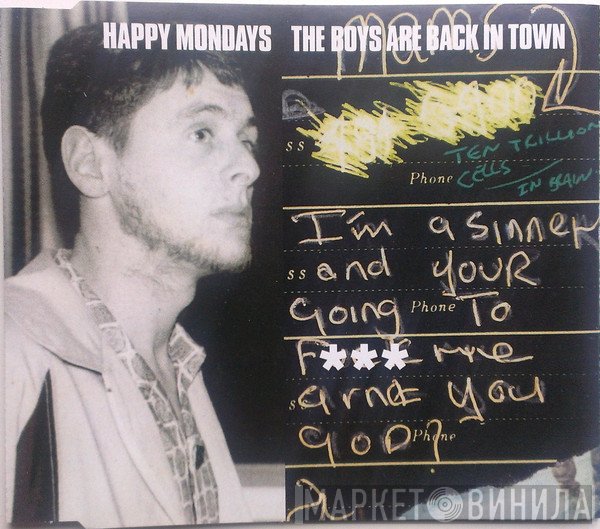 HAPPY MONDAYS THE BOYS ARE BACK IN TOWN
Mams
ss
TEN TRILLION
Phone CELLS
IN BRAIN
I'm a sinner
ss and YOUR
Going Phone To
F*** me
s arnt You
GOD? Phone
МАРКЕТ ВИНИЛА